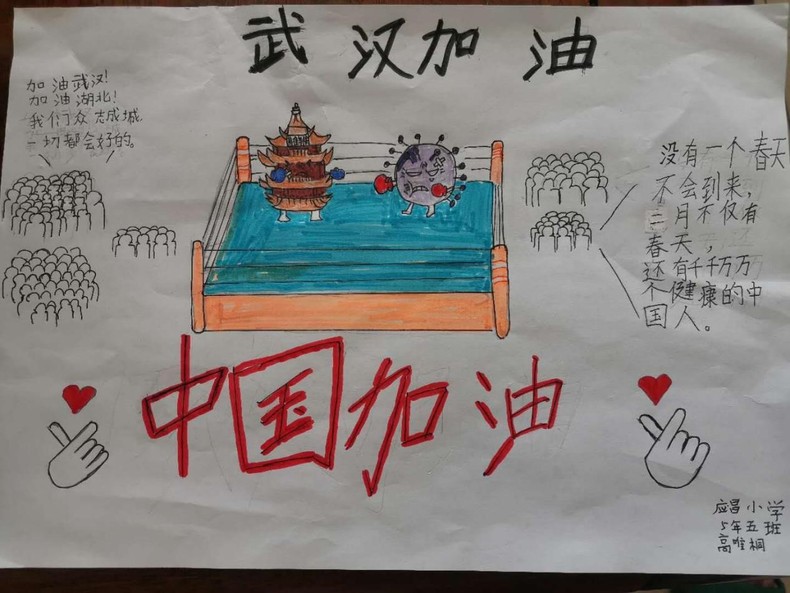 武汉加油
加油武汉!
加油湖北!
我们众志成城,
一切都会好的。
没有一个春天
不会到来,
三月不仅有
春天,
还有千千万万
个健康的中
国人。
中国加油
应昌小学
5年五班
高唯桐